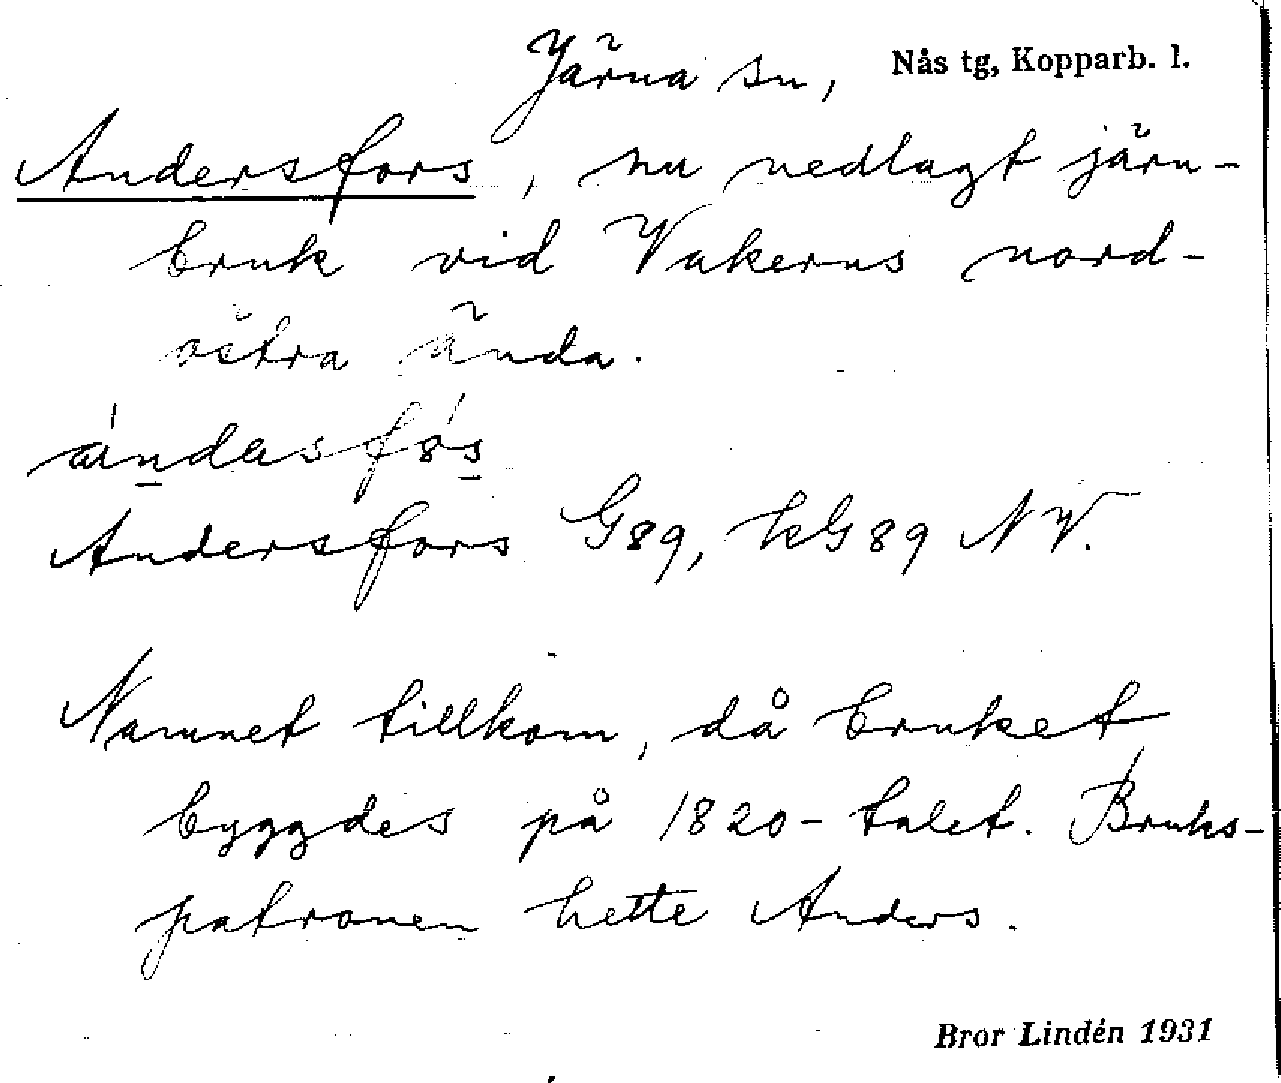 Järna sn, Nås tg, Kopparb. l.
Andersfors, nu nedlagt järn-
bruk vid Vakerns nord-
östra ända.
Andersfors G89, hG89 NV.
Namnet tillkom, då bruket
byggdes på 1820-talet. Bruks-
patronen hette Anders.
Bror Lindén 1931